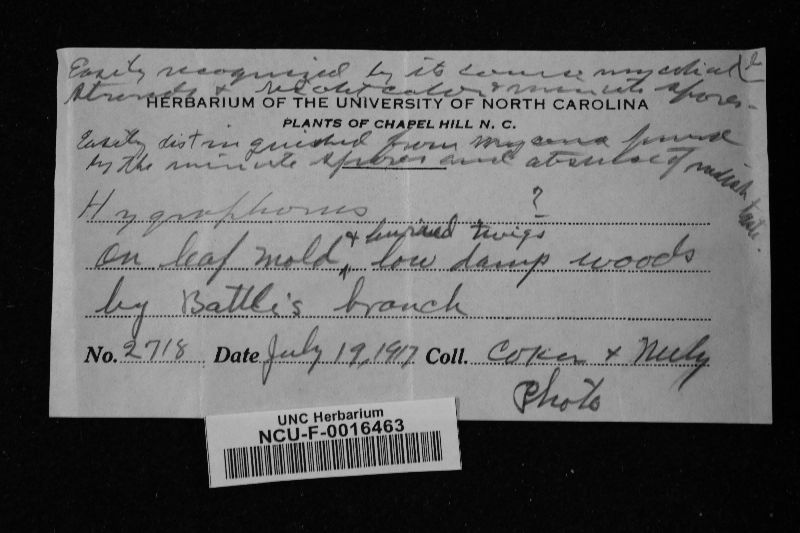 Easily recognized by its course mycelial
strands & color & minute spores.
HERBARIUM OF THE UNIVERSITY OF NORTH CAROLINA
PLANTS OF CHAPEL HILL N. C.
Easily distinguished from Mycena
by the minute spores and absence of radish taste.
Hygrophorus ?
& buried twigs
on leaf mold, low damp woods
by Battle's branch
No. 2718 Date July 19, 1917 Coll. Coker &
Photo
UNC Herbarium
NCU-F-0016463